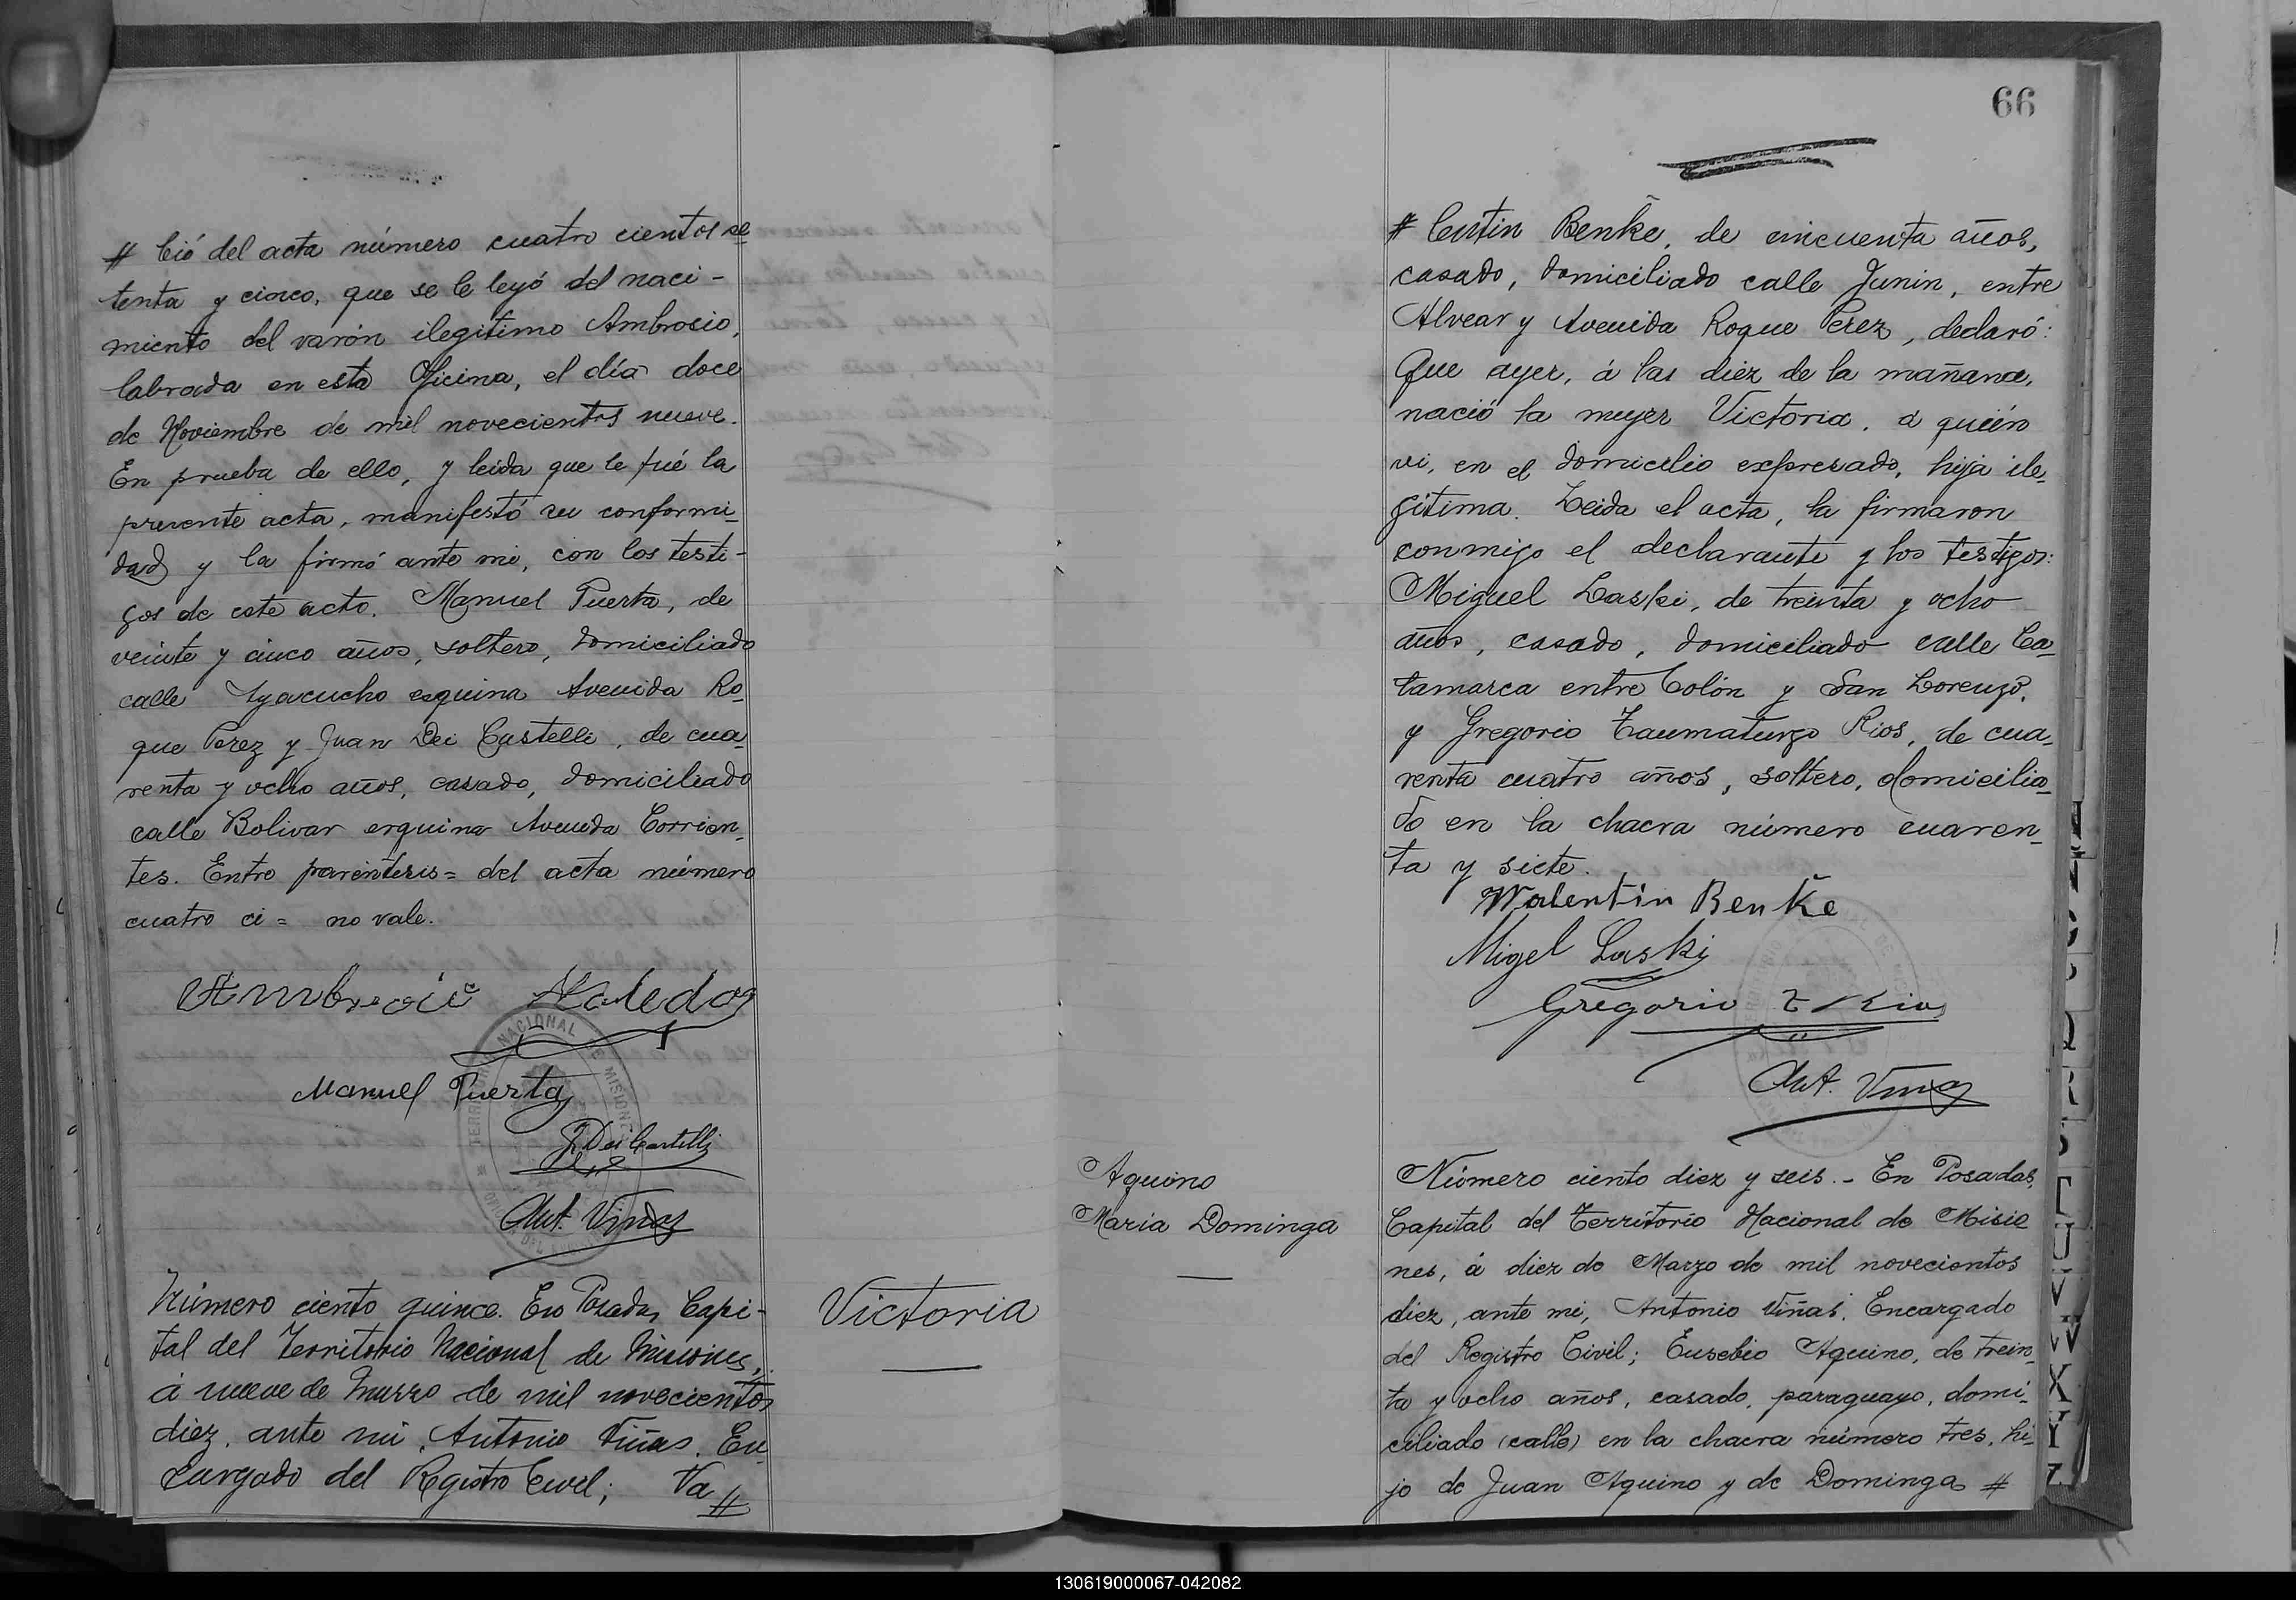 # ció del acta número cuatro cientos se
tenta y cinco, que se le leyó del naci-
miento del varón ilegitimo Ambrosio,
labrada en esta Oficina, el día doce
de Noviembre de mil novecientos nueve.
En prueba de ello, y leida que le fué la
presente acta, manifestó su conformi-
dad y la firmó ante mi, con los testi-
gos de este acto. Manuel Puerta, de
veinte y cinco años, soltero, domiciliado
calle Ayacucho esquina Avenida Ro-
que Perez y Juan Dei Castelli, de cua-
renta y ocho años, casado, domiciliado
calle Bolivar esquina Avenida Corrien-
tes. Entre parentesis = del acta número
cuatro ci = no vale.
Manuel Puerta
J. Dei Castelli
Ant. Viñas
NACIONAL DE MISIONES
TERRITORIO
Número ciento quince. En Posadas, Capi-
tal del Territorio Nacional de Misiones,
á nueve de Marzo de mil novecientos
diez, ante mi, Antonio Viñas, En-
cargado del Registro Civil; Va #
Victoria
66
# lentin Benke, de cincuenta años,
casado, domiciliado calle Junin, entre
Alvear y Avenida Roque Perez, declaró:
Que ayer, á las diez de la mañana,
nació la mujer Victoria, a quién
vi, en el domicilio expresado, hija ile-
gitima. Leida el acta, la firmaron
conmigo el declarante y los testigos:
Miguel Laski, de treinta y ocho
años, casado, domiciliado calle Ca-
tamarca entre Colón y San Lorenzo,
y Gregorio Taumaturgo Rios, de cua-
renta cuatro años, soltero, domicilia-
do en la chacra número cuaren-
ta y siete.
Walentin Benke
Migel Laski
Gregorio T Rios
Ant. Viñas
Aquino
Maria Dominga
Número ciento diez y seis.- En Posadas,
Capital del Territorio Nacional de Misio
nes, á diez de Marzo de mil novecientos
diez, ante mi, Antonio Viñas, Encargado
del Registro Civil; Eusebio Aquino, de trein-
ta y ocho años, casado, paraguayo, domi-
ciliado (calle) en la chacra número tres, hi-
jo de Juan Aquino y de Dominga #
U
V
W
X
Y
Z
130619000067-042082